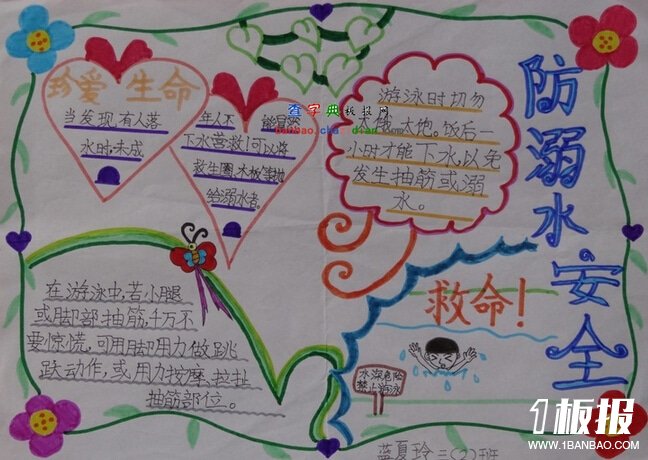 珍爱生命
当发现有人落
水时,未成
年人不能冒然
下水营救!可以将
救生圈、木板等抛
给溺水者。
查字典板报网
banbao.chazidian.com
游泳时切勿
太饿、太饱。饭后一
小时才能下水,以免
发生抽筋或溺
水。
防溺水安全
在游泳中,若小腿
或脚部抽筋,千万不
要惊慌,可用脚用力做跳
跃动作,或用力按摩、拉扯
抽筋部位。
救命!
水深危险
禁止游泳
蓝夏玲 三(2)班
1板报
WWW.1BANBAO.COM